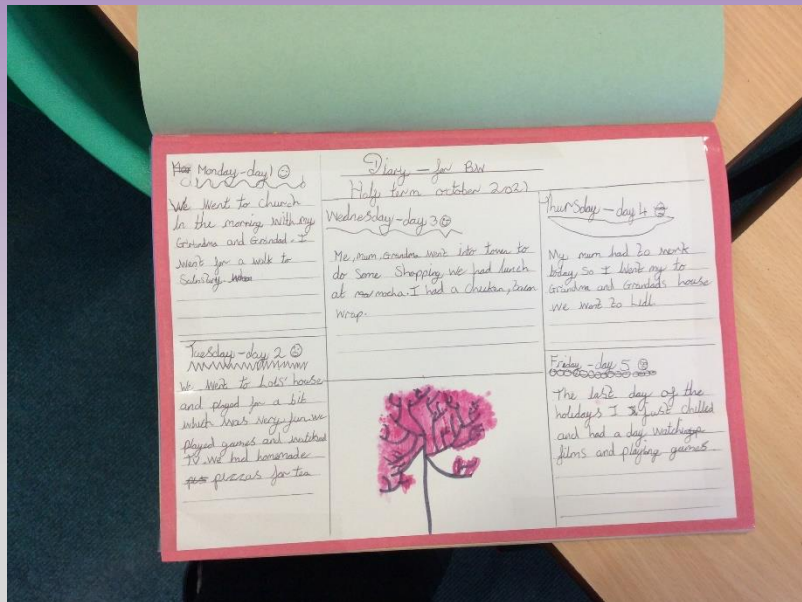 Diary - for BW
Half term october 2021
Monday - day 1
We Went to church
In the morning with my
Grandma and Grandad. I
went for a walk to
Salisbury.
Tuesday - day 2
We Went to Lots' house
and played for a bit
which was very fun. we
played games and watched
TV. We had homemade
pizzas for tea
Wednesday - day 3
Me, mum, Grandma went into town to
do some shopping. we had lunch
at mocha. I had a chicken, bacon
wrap.
Thursday - day 4
My mum had to work
today, So I Went my to
Grandma and Grandads house
We went to Lidl
Friday - day 5
The last day of the
holidays I just chilled
and had a day watching
films and playing games